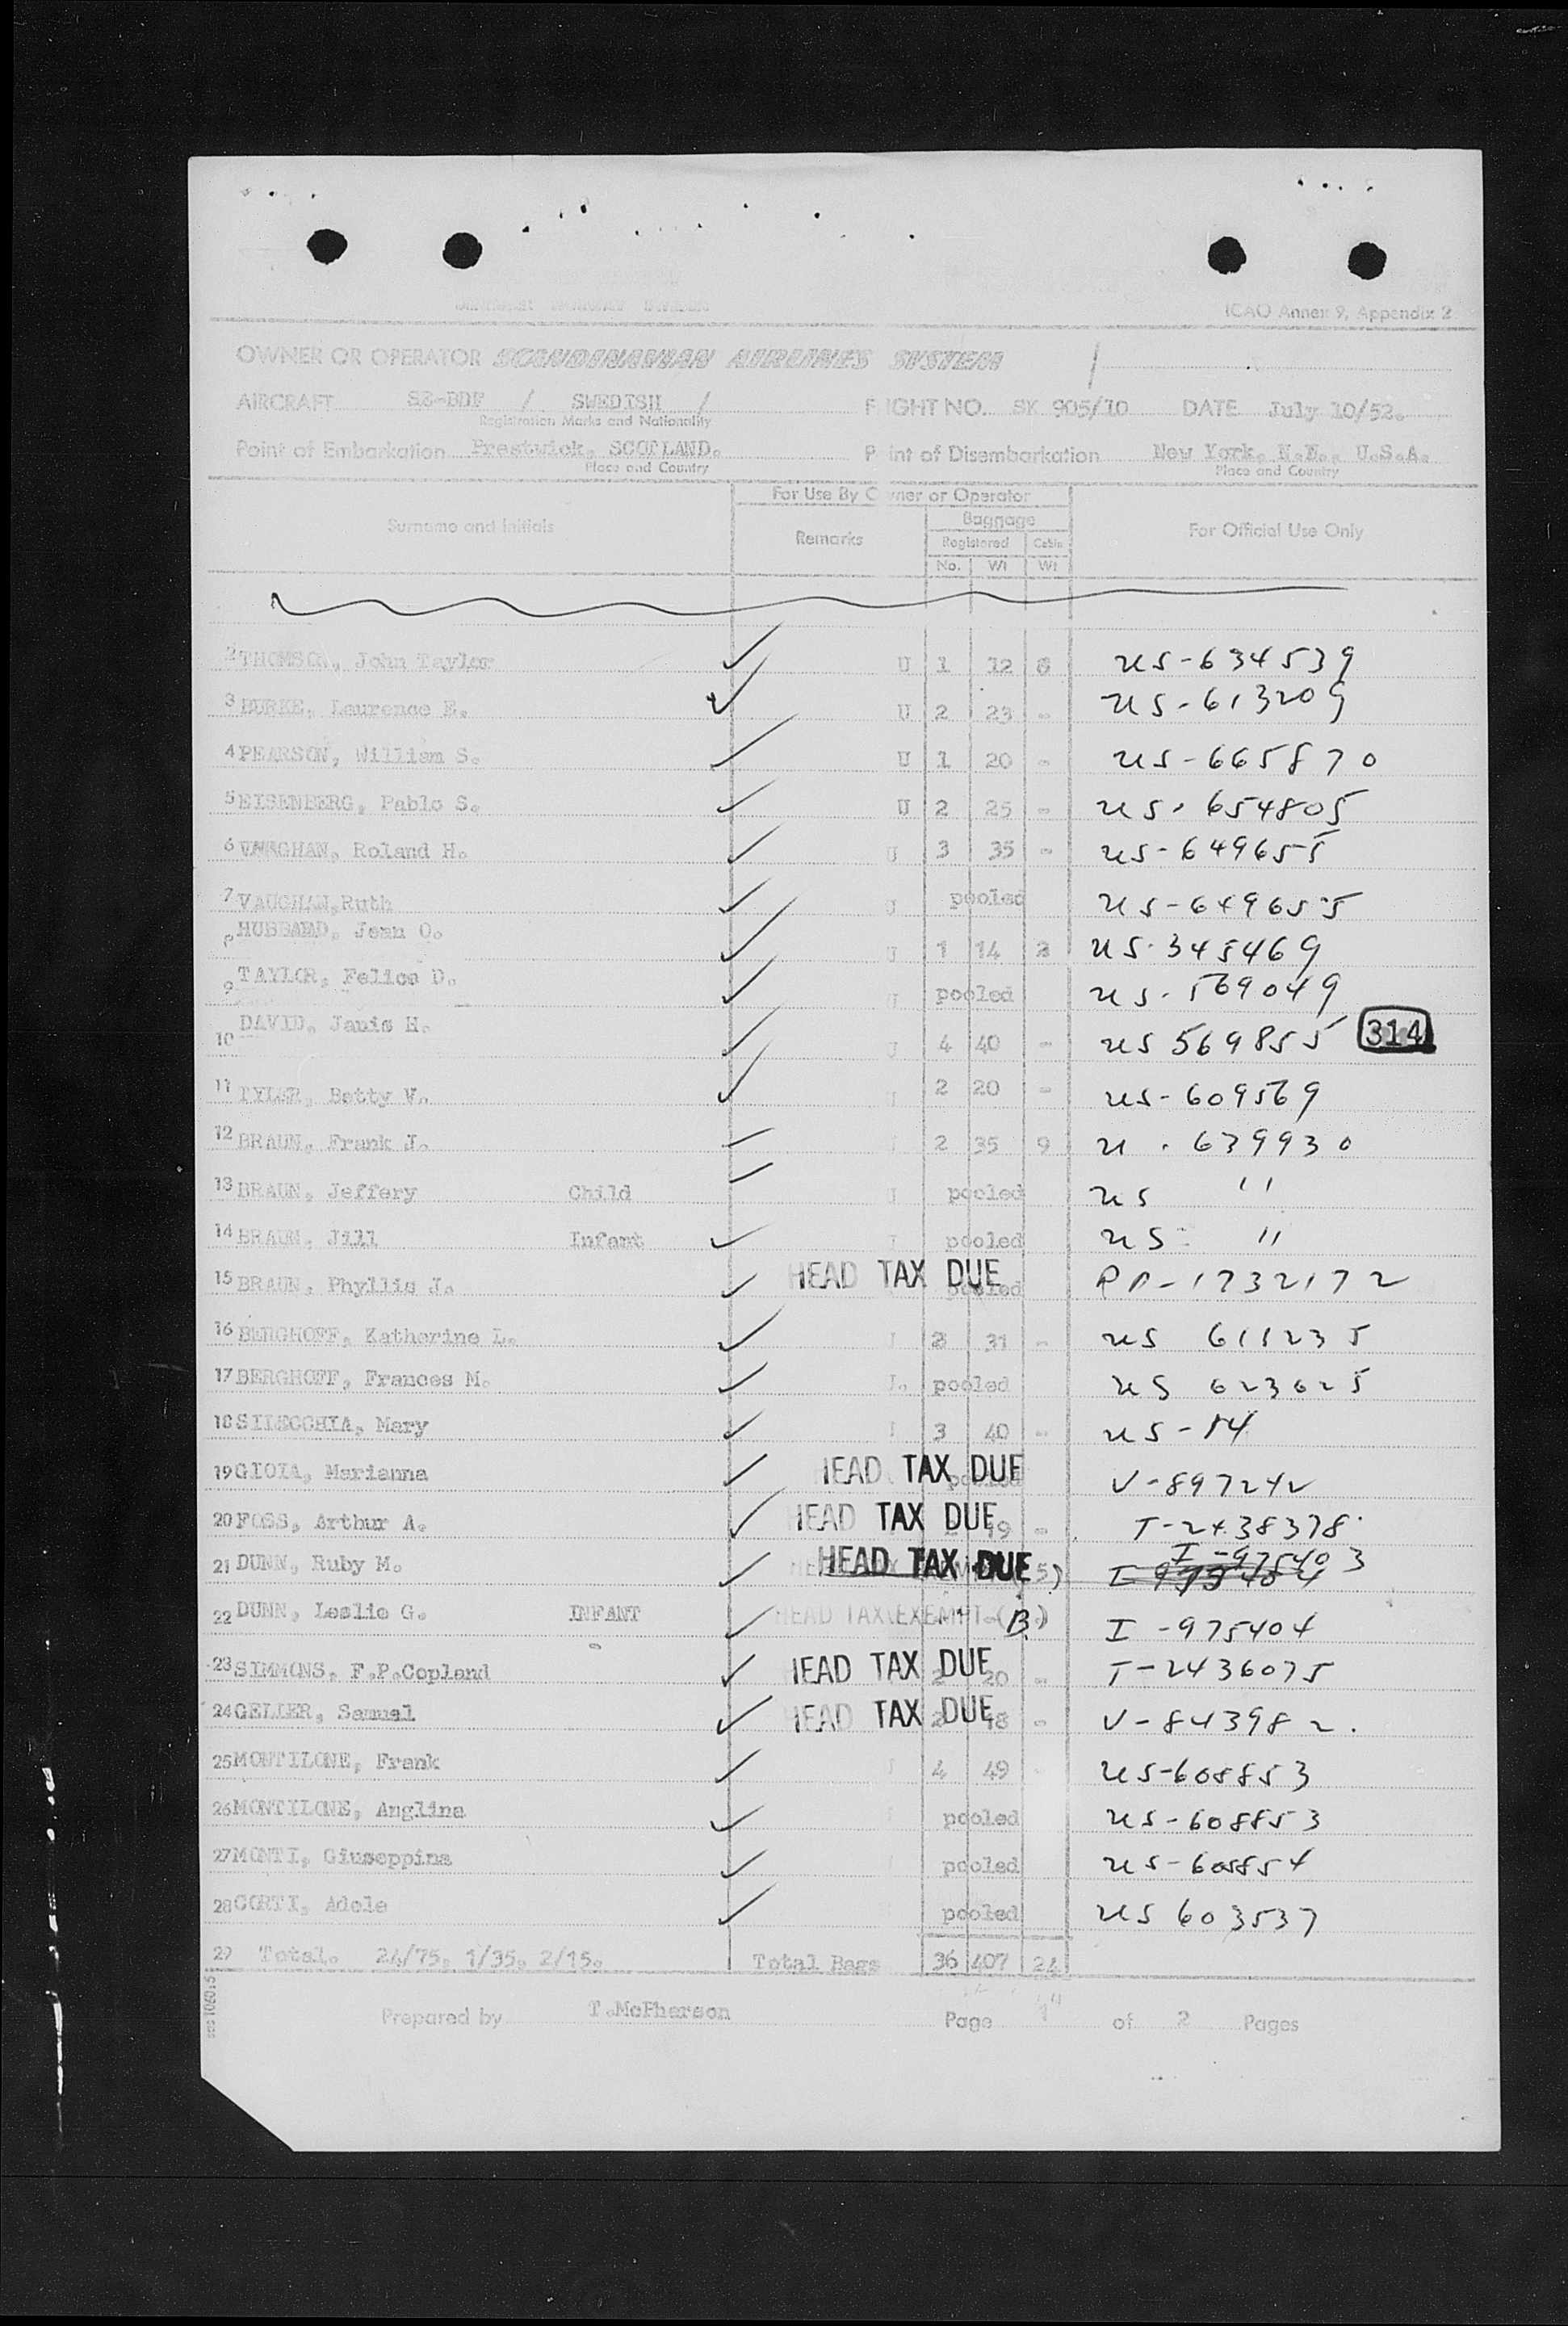 ICAO Annex 9, Appendix 2
OWNER OR OPERATOR SCANDINAVIAN AIRLINES SYSTEM /
AIRCRAFT SE-BDF / SWEDISH / FLIGHT NO. SK 905/10 DATE July 10/52.
Registration Marks and Nationality
Point of Embarkation Prestwick, SCOTLAND. Point of Disembarkation New York, N.Y., U.S.A.
Place and Country Place and Country
For Use By Owner or Operator
Surname and Initials Remarks Baggage For Official Use Only
Registered Cabin
No. Wt Wt
2 THOMSON, John Taylor U 1 12 8 US-634539
3 BURKE, Laurence E. U 2 23 - US-613209
4 PEARSON, William S. U 1 20 - US-665870
5 EISENBERG, Pablo S. U 2 25 - US-654805
6 VAUGHAN, Roland H. U 3 35 - US-649655
7 VAUGHAN, Ruth U pooled US-649655
8 HUBBARD, Jean O. U 1 14 US-345469
9 TAYLOR, Felice D. U pooled US-569049
10 DAVID, Janis H. U 4 40 - US 569855 314
11 TYLER, Betty V. 2 20 - US-609569
12 BRAUN, Frank J. 2 35 9 U . 639930
13 BRAUN, Jeffery Child U pooled US "
14 BRAUN, Jill Infant pooled US- "
15 BRAUN, Phyllis J. HEAD TAX DUE pooled RP-1732172
16 BERGHOFF, Katherine L. 2 31 - US 611235
17 BERGHOFF, Frances M. pooled US 623625
18 SILECCHIA, Mary 3 40 - US-14
19 GIOIA, Marianna HEAD TAX DUE V-897242
20 FOSS, Arthur A. HEAD TAX DUE 19 - T-2438378
21 DUNN, Ruby M. HEAD TAX DUE I-975403
22 DUNN, Leslie G. INFANT HEAD TAX EXEMPT (B) I-975404
23 SIMMONS, F.P.Copland HEAD TAX DUE 2 20 - T-2436075
24 GELLER, Samuel HEAD TAX DUE 2 18 - V-843982.
25 MONTILONE, Frank 4 49 US-608853
26 MONTILONE, Anglina pooled US-608853
27 MONTI, Giuseppina pooled US-608854
28 CORTI, Adele pooled US 603537
29 Total. 24/75, 1/35, 2/15. Total Bags 36 407 24
Prepared by T.McPherson Page 1 of 2 Pages